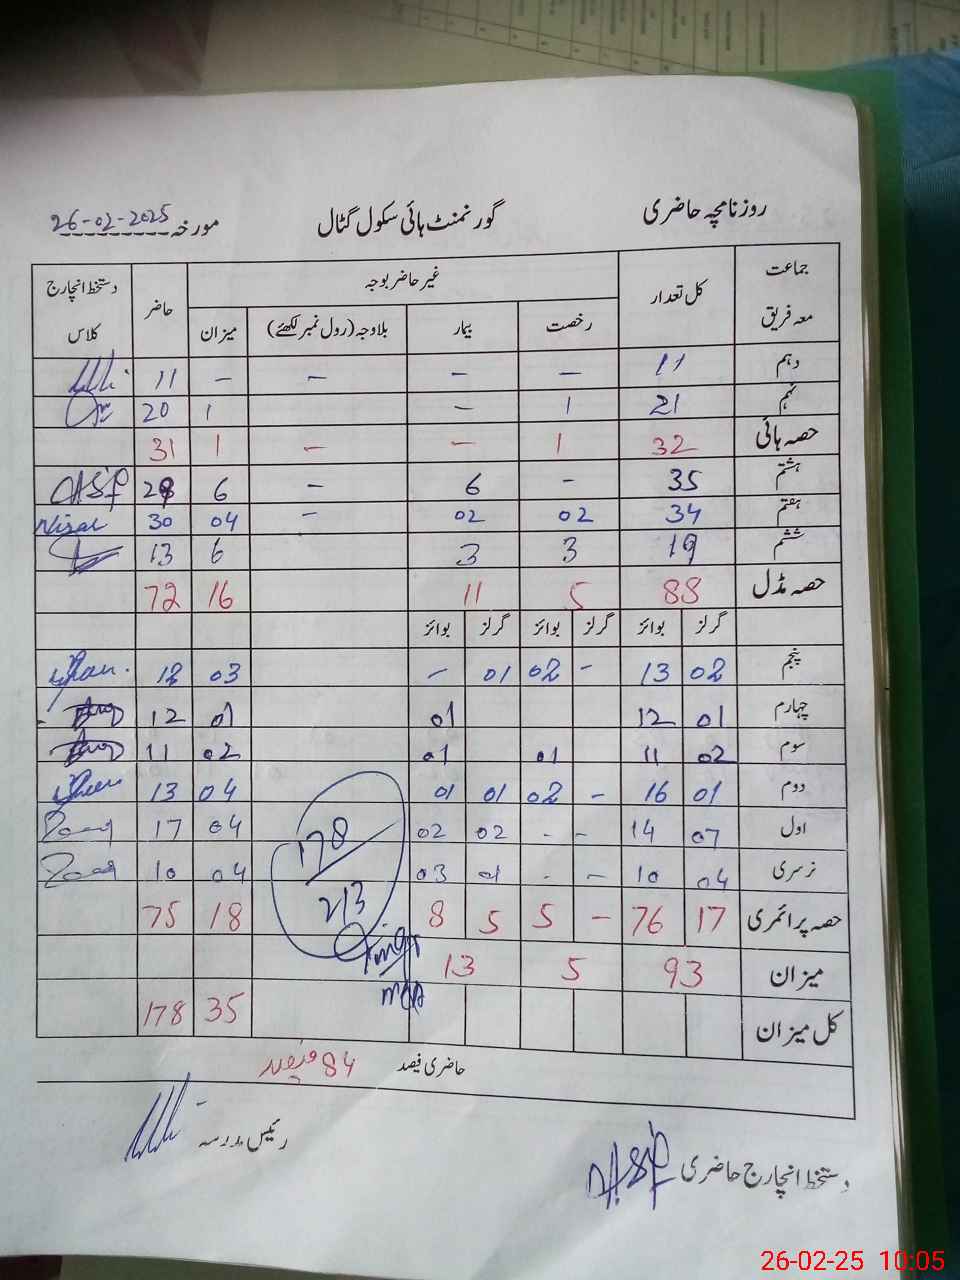 روزنامچہ حاضری
گورنمنٹ ہائی سکول گٹال
مورخہ 26-02-2025
جماعت معہ فریق کل تعداد غیر حاضر بوجہ حاضر دستخط انچارج کلاس
رخصت بیمار بلاوجہ (رول نمبر لکھئے) میزان
دہم 11 – – – – 11
نہم 21 1 – 1 20
حصہ ہائی 32 1 – – 1 31
ہشتم 35 – 6 – 6 29
ہفتم 34 02 02 – 04 30 Nisar
ششم 19 3 3 6 13
حصہ مڈل 88 5 11 16 72
گرلز بوائز گرلز بوائز گرلز بوائز
پنجم 02 13 – 02 01 – 03 12
چہارم 01 12 01 01 12
سوم 02 11 01 01 02 11
دوم 01 16 – 02 01 01 04 13
اول 07 14 – - 02 02 04 17
نرسری 04 10 – - 01 03 04 10
حصہ پرائمری 17 76 – 5 5 8 18 75
میزان 93 5 13
کل میزان 35 178
178/213
حاضری فیصد 84 فیصد
رئیس مدرسہ
دستخط انچارج حاضری
26-02-25 10:05